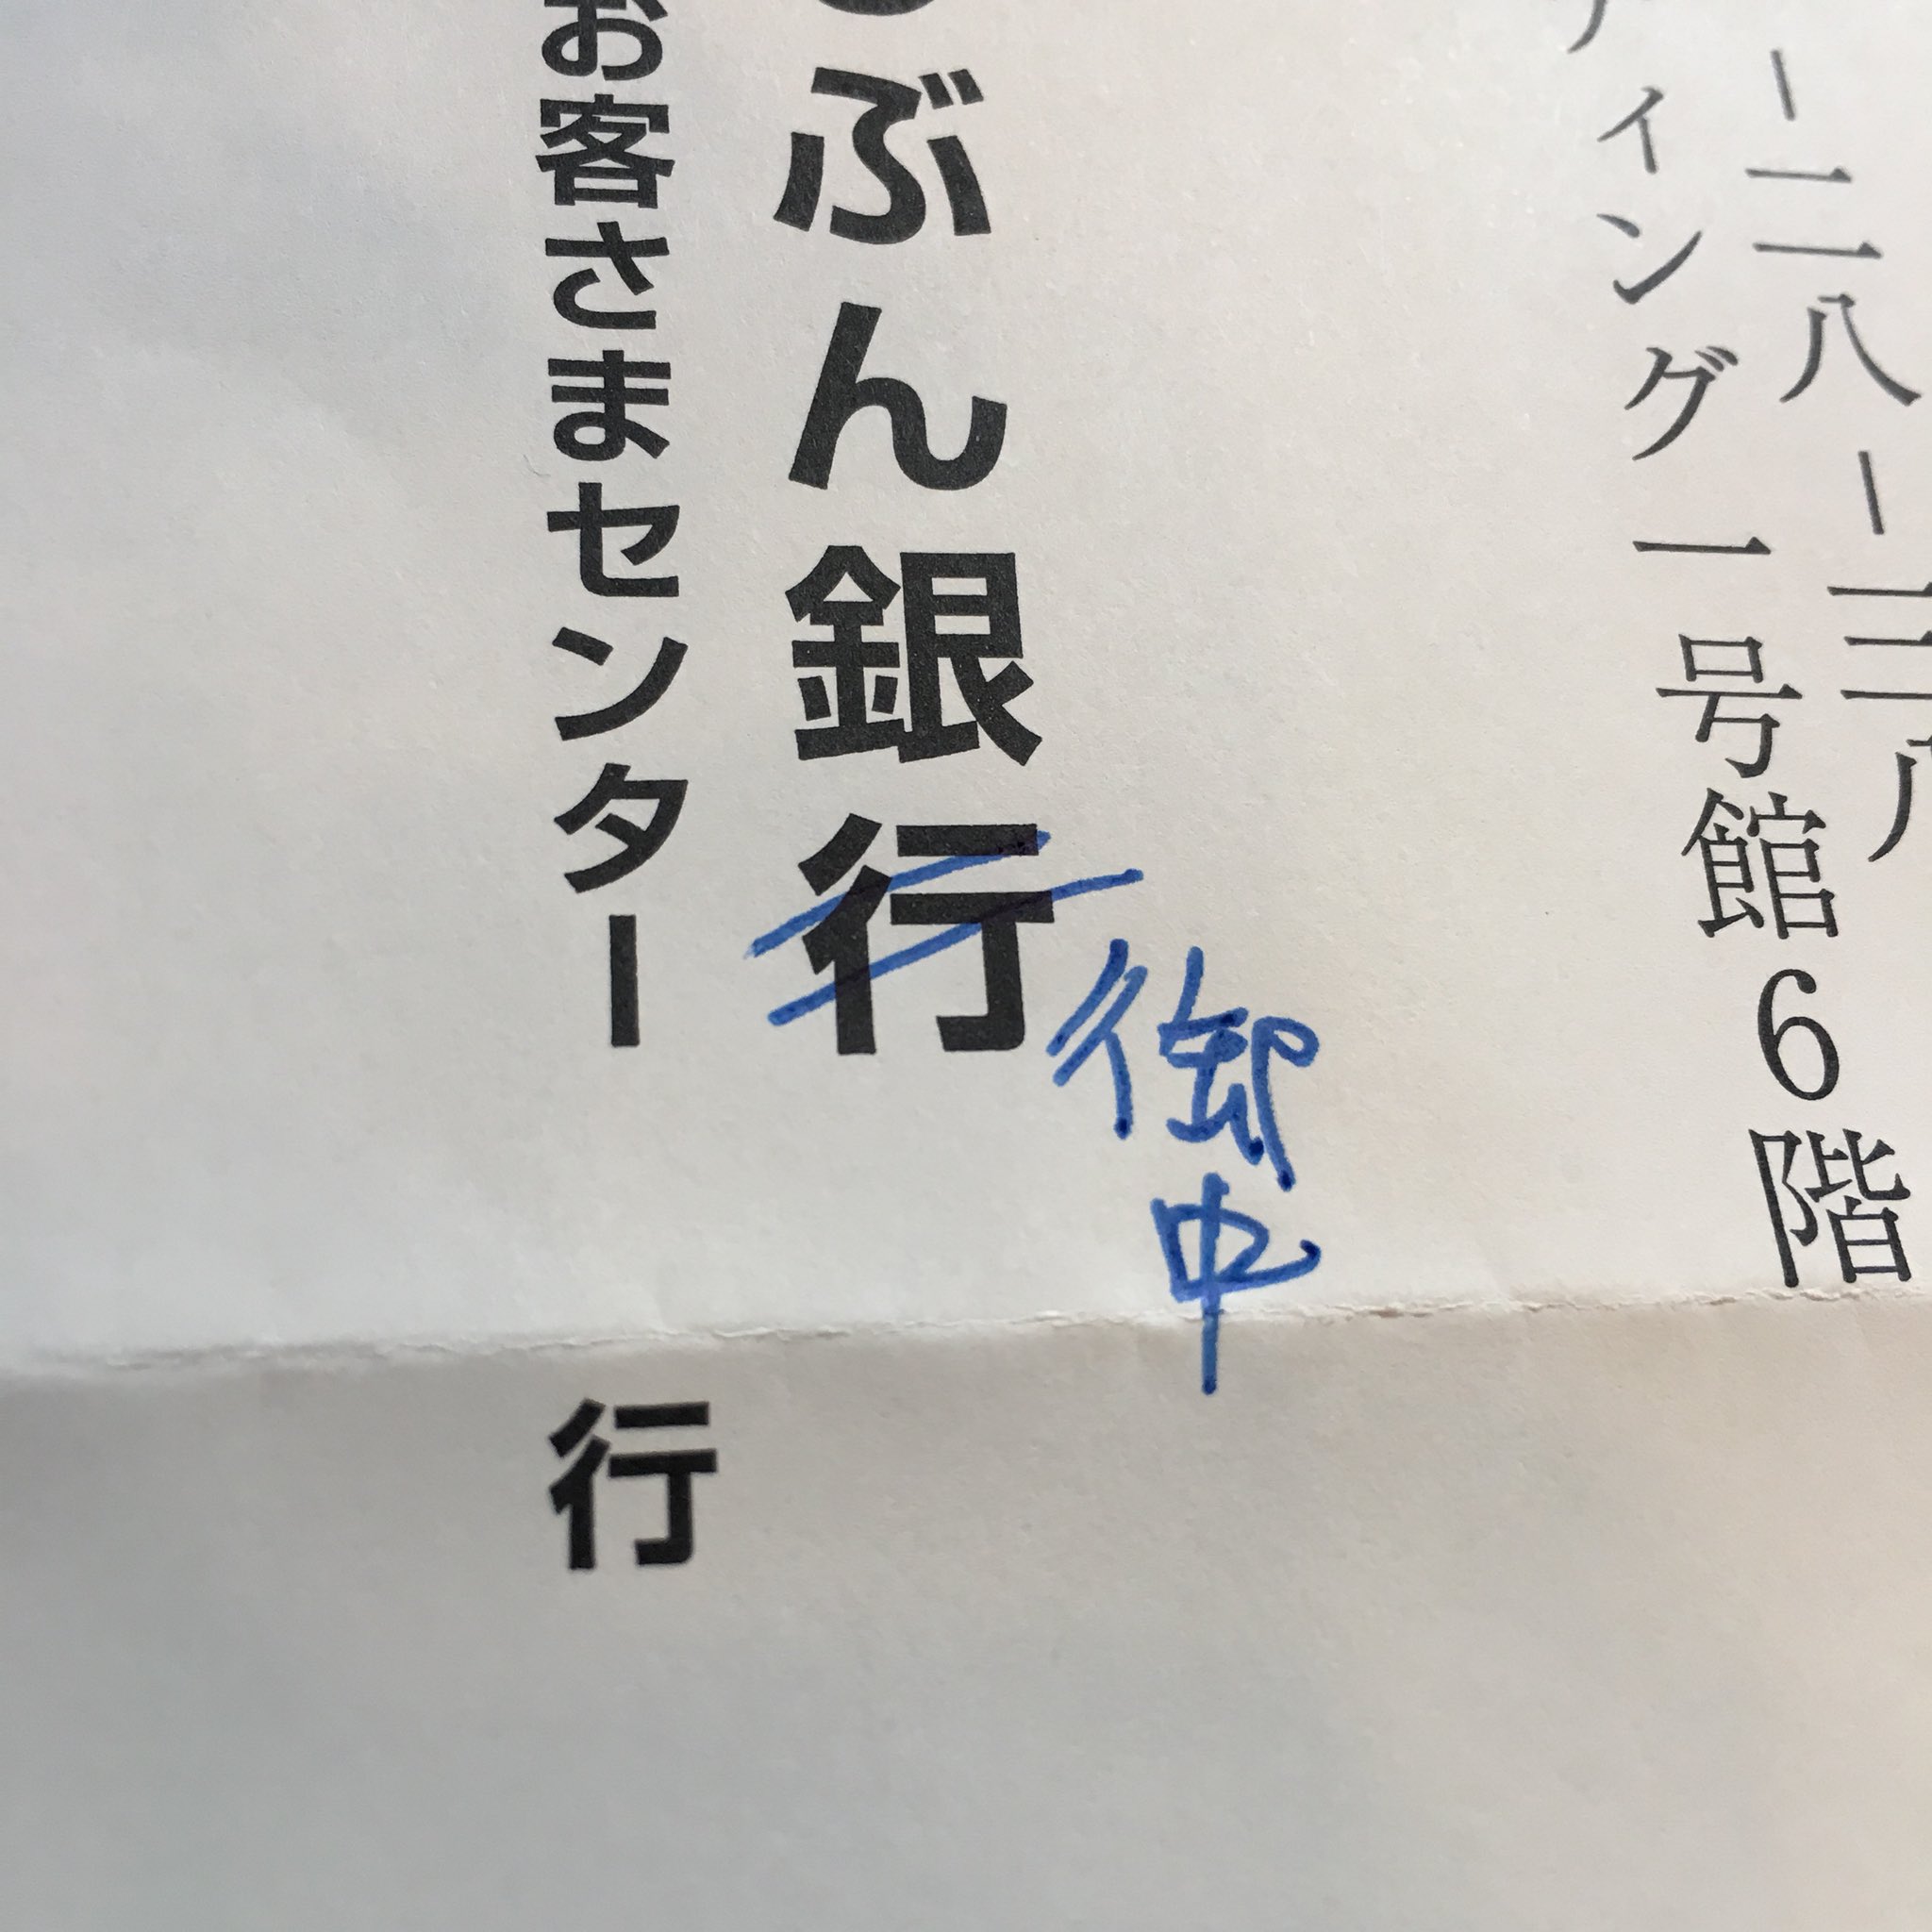 -二八-三八
ィング一号館6階
ぶん銀行
御中
お客さまセンター 行